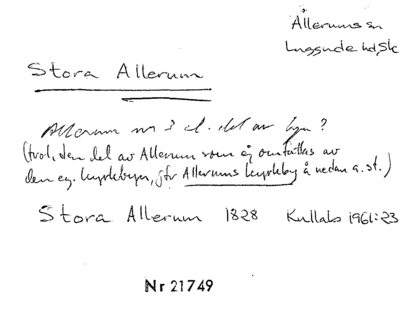 Allerums sn
Luggude hd, Sk
Stora Allerum
Allerum nr 3 el. del av byn?
(trol. den del av Allerum som ej omfattas av
den eg. kyrkbyn, jfr Allerums kyrkby å nedan a. st.)
Stora Allerum 1828 Kullabs 1961:23
Nr 21749